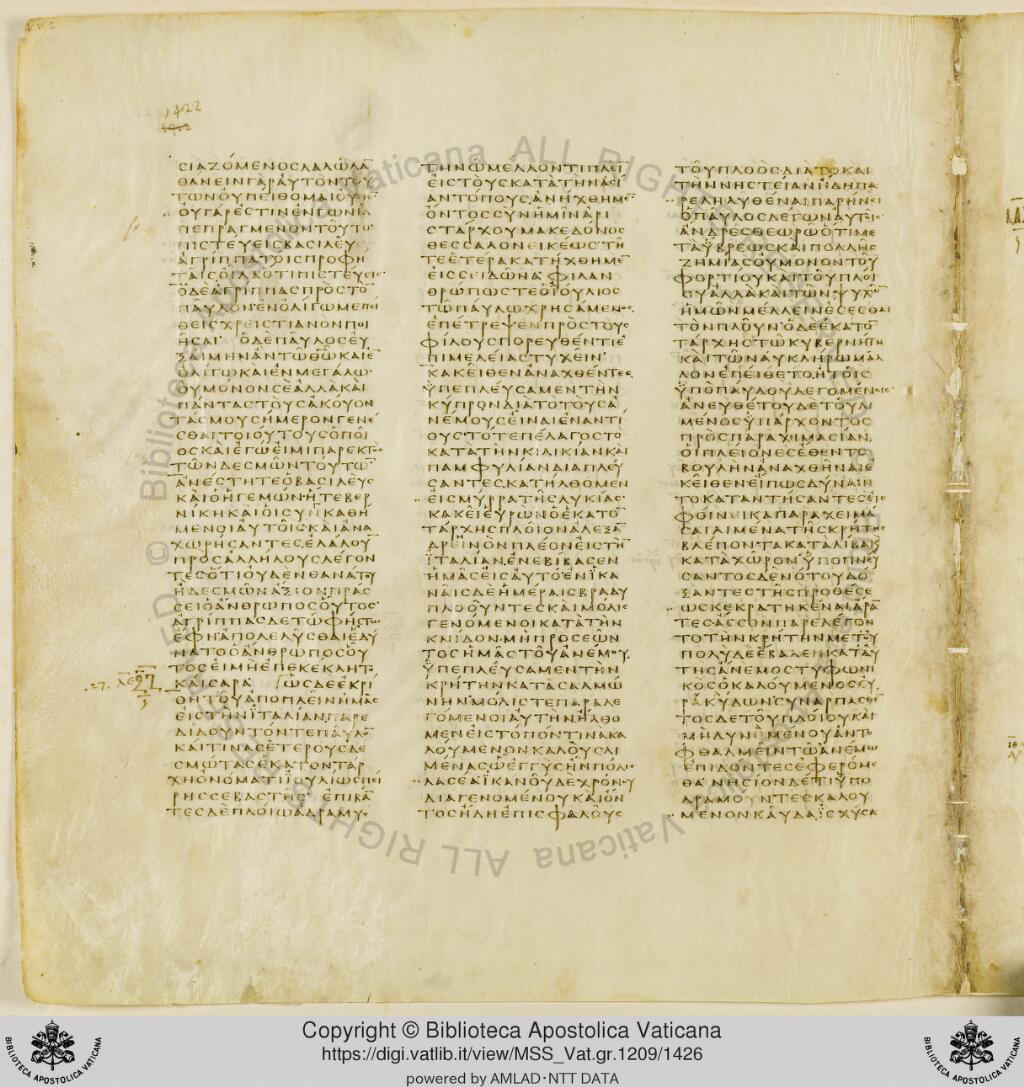 1422
ΣΙΑΖΟΜΕΝΟΣΛΑΛΩΛΑ̅
ΘΑΝΕΙΝΓΑΡΑΥΤΟΝΤΟΥ
ΤΩΝΟΥΠΕΙΘΟΜΑΙΟΥΘΕ̅
ΟΥΓΑΡΕΣΤΙΝΕΝΓΩΝΙΑ
ΠΕΠΡΑΓΜΕΝΟΝΤΟΥΤΟ
ΠΙΣΤΕΥΕΙΣΒΑΣΙΛΕΥ
ΑΓΡΙΠΠΑΤΟΙΣΠΡΟΦΗ
ΤΑΙΣΟΙΔΑΟΤΙΠΙΣΤΕΥΕΙΣ
ΟΔΕΑΓΡΙΠΠΑΣΠΡΟΣΤΟ̅
ΠΑΥΛΟΝΕΝΟΛΙΓΩΜΕΠΕΙ
ΘΕΙΣΧΡΕΙΣΤΙΑΝΟΝΠΟΙ
ΗΣΑΙ ΟΔΕΠΑΥΛΟΣΕΥ
ΞΑΙΜΗΝΑΝΤΩΘΩ̅ΚΑΙΕ̅
ΟΛΙΓΩΚΑΙΕΝΜΕΓΑΛΩ
ΟΥΜΟΝΟΝΣΕΑΛΛΑΚΑΙ
ΠΑΝΤΑΣΤΟΥΣΑΚΟΥΟΝ
ΤΑΣΜΟΥΣΗΜΕΡΟΝΓΕΝΕ
ΣΘΑΙΤΟΙΟΥΤΟΥΣΟΠΟΙ
ΟΣΚΑΙΕΓΩΕΙΜΙΠΑΡΕΚΤΟΣ
ΤΩΝΔΕΣΜΩΝΤΟΥΤΩ̅
ΑΝΕΣΤΗΤΕΟΒΑΣΙΛΕΥΣ
ΚΑΙΟΗΓΕΜΩΝΗΤΕΒΕΡ
ΝΙΚΗΚΑΙΟΙΣΥΝΚΑΘΗ
ΜΕΝΟΙΑΥΤΟΙΣΚΑΙΑΝΑ
ΧΩΡΗΣΑΝΤΕΣΕΛΑΛΟΥ̅
ΠΡΟΣΑΛΛΗΛΟΥΣΛΕΓΟΝ
ΤΕΣΟΤΙΟΥΔΕΝΘΑΝΑΤΟΥ
ΗΔΕΣΜΩΝΑΞΙΟΝΠΡΑΣ
ΣΕΙΟΑΝΘΡΩΠΟΣΟΥΤΟΣ
ΑΓΡΙΠΠΑΣΔΕΤΩΦΗΣΤΩ
ΕΦΗΑΠΟΛΕΛΥΣΘΑΙΕΔΥ
ΝΑΤΟΟΑΝΘΡΩΠΟΣΟΥ
ΤΟΣΕΙΜΗΕΠΕΚΕΚΛΗΤΟ
ΚΑΙΣΑΡΑ ΩΣΔΕΕΚΡΙ
ΘΗΤΟΥΑΠΟΠΛΕΙΝΗΜΑΣ
ΕΙΣΤΗΝΙΤΑΛΙΑΝΠΑΡΕ
ΔΙΔΟΥΝΤΟΝΤΕΠΑΥΛΟ̅
ΚΑΙΤΙΝΑΣΕΤΕΡΟΥΣΔΕ
ΣΜΩΤΑΣΕΚΑΤΟΝΤΑΡ
ΧΗΟΝΟΜΑΤΙΙΟΥΛΙΩΣΠΕΙ
ΡΗΣΣΕΒΑΣΤΗΣ ΕΠΙΒΑ̅
ΤΕΣΔΕΠΛΟΙΩΑΔΡΑΜΥ
ΤΗΝΩΜΕΛΛΟΝΤΙΠΛΕΙ̅
ΕΙΣΤΟΥΣΚΑΤΑΤΗΝΑΣΙ
ΑΝΤΟΠΟΥΣΑΝΗΧΘΗΜΕ̅
ΟΝΤΟΣΣΥΝΗΜΙΝΑΡΙ
ΣΤΑΡΧΟΥΜΑΚΕΔΟΝΟΣ
ΘΕΣΣΑΛΟΝΕΙΚΕΩΣΤΗ
ΤΕΕΤΕΡΑΚΑΤΗΧΘΗΜΕ̅
ΕΙΣΣΕΙΔΩΝΑΦΙΛΑΝ
ΘΡΩΠΩΣΤΕΟΙΟΥΛΙΟΣ
ΤΩΠΑΥΛΩΧΡΗΣΑΜΕΝΟΣ
ΕΠΕΤΡΕΨΕΝΠΡΟΣΤΟΥΣ
ΦΙΛΟΥΣΠΟΡΕΥΘΕΝΤΙΕ
ΠΙΜΕΛΕΙΑΣΤΥΧΕΙΝ
ΚΑΚΕΙΘΕΝΑΝΑΧΘΕΝΤΕΣ
ΥΠΕΠΛΕΥΣΑΜΕΝΤΗΝ
ΚΥΠΡΟΝΔΙΑΤΟΤΟΥΣΑ
ΝΕΜΟΥΣΕΙΝΑΙΕΝΑΝΤΙ
ΟΥΣΤΟΤΕΠΕΛΑΓΟΣΤΟ
ΚΑΤΑΤΗΝΚΙΛΙΚΙΑΝΚΑΙ
ΠΑΜΦΥΛΙΑΝΔΙΑΠΛΕΥ
ΣΑΝΤΕΣΚΑΤΗΛΘΟΜΕΝ
ΕΙΣΜΥΡΡΑΤΗΣΛΥΚΙΑΣ
ΚΑΚΕΙΕΥΡΩΝΟΕΚΑΤΟ̅
ΤΑΡΧΗΣΠΛΟΙΟΝΑΛΕΞΑ̅
ΔΡΕΙΝΟΝΠΛΕΟΝΕΙΣΤΗ̅
ΙΤΑΛΙΑΝΕΝΕΒΙΒΑΣΕΝ
ΗΜΑΣΕΙΣΑΥΤΟΕΝΙΚΑ
ΝΑΙΣΔΕΗΜΕΡΑΙΣΒΡΑΔΥ
ΠΛΟΟΥΝΤΕΣΚΑΙΜΟΛΙΣ
ΓΕΝΟΜΕΝΟΙΚΑΤΑΤΗΝ
ΚΝΙΔΟΝΜΗΠΡΟΣΕΩΝ
ΤΟΣΗΜΑΣΤΟΥΑΝΕΜΟΥ
ΥΠΕΠΛΕΥΣΑΜΕΝΤΗΝ
ΚΡΗΤΗΝΚΑΤΑΣΑΛΜΩ
ΝΗΝΜΟΛΙΣΤΕΠΑΡΑΛΕ
ΓΟΜΕΝΟΙΑΥΤΗΝΗΛΘΟ
ΜΕΝΕΙΣΤΟΠΟΝΤΙΝΑΚΑ
ΛΟΥΜΕΝΟΝΚΑΛΟΥΣΛΙ
ΜΕΝΑΣΩΕΓΓΥΣΗΝΠΟΛΙΣ
ΛΑΣΕΑΙΚΑΝΟΥΔΕΧΡΟΝΟΥ
ΔΙΑΓΕΝΟΜΕΝΟΥΚΑΙΟΝ
ΤΟΣΗΔΗΕΠΙΣΦΑΛΟΥΣ
ΤΟΥΠΛΟΟΣΔΙΑΤΟΚΑΙ
ΤΗΝΝΗΣΤΕΙΑΝΗΔΗΠΑ
ΡΕΛΗΛΥΘΕΝΑΙΠΑΡΗΝΕΙ
ΟΠΑΥΛΟΣΛΕΓΩΝΑΥΤΟΙΣ
ΑΝΔΡΕΣΘΕΩΡΩΟΤΙΜΕ
ΤΑΥΒΡΕΩΣΚΑΙΠΟΛΛΗΣ
ΖΗΜΙΑΣΟΥΜΟΝΟΝΤΟΥ
ΦΟΡΤΙΟΥΚΑΙΤΟΥΠΛΟΙ
ΟΥΑΛΛΑΚΑΙΤΩΝΨΥΧΩ̅
ΗΜΩΝΜΕΛΛΕΙΝΕΣΕΣΘΑΙ
ΤΟΝΠΛΟΥΝΟΔΕΕΚΑΤΟ̅
ΤΑΡΧΗΣΤΩΚΥΒΕΡΝΗΤΗ
ΚΑΙΤΩΝΑΥΚΛΗΡΩΜΑΛ
ΛΟΝΕΠΕΙΘΕΤΟΗΤΟΙΣ
ΥΠΟΠΑΥΛΟΥΛΕΓΟΜΕΝΟΙΣ
ΑΝΕΥΘΕΤΟΥΔΕΤΟΥΛΙ
ΜΕΝΟΣΥΠΑΡΧΟΝΤΟΣ
ΠΡΟΣΠΑΡΑΧΙΜΑΣΙΑΝ
ΟΙΠΛΕΙΟΝΕΣΕΘΕΝΤΟ
ΒΟΥΛΗΝΑΝΑΧΘΗΝΑΙΕ
ΚΕΙΘΕΝΕΙΠΩΣΔΥΝΑΙΝ
ΤΟΚΑΤΑΝΤΗΣΑΝΤΕΣΕΙΣ
ΦΟΙΝΕΙΚΑΠΑΡΑΧΕΙΜΑ
ΣΑΙΛΙΜΕΝΑΤΗΣΚΡΗΤΗΣ
ΒΛΕΠΟΝΤΑΚΑΤΑΛΙΒΑΚΑΙ
ΚΑΤΑΧΩΡΟΝΥΠΟΠΝΕΥ
ΣΑΝΤΟΣΔΕΝΟΤΟΥΔΟ
ΞΑΝΤΕΣΤΗΣΠΡΟΘΕΣΕ
ΩΣΚΕΚΡΑΤΗΚΕΝΑΙΑΡΑ̅
ΤΕΣΑΣΣΟΝΠΑΡΕΛΕΓΟΝ
ΤΟΤΗΝΚΡΗΤΗΝΜΕΤΟΥ
ΠΟΛΥΔΕΕΒΑΛΕΝΚΑΤΑΥ
ΤΗΣΑΝΕΜΟΣΤΥΦΩΝΙ
ΚΟΣΟΚΑΛΟΥΜΕΝΟΣΕΥ
ΡΑΚΥΛΩΝΣΥΝΑΡΠΑΣΘΕ̅
ΤΟΣΔΕΤΟΥΠΛΟΙΟΥΚΑΙ
ΜΗΔΥΝΟΜΕΝΟΥΑΝΤΟ
ΦΘΑΛΜΕΙΝΤΩΑΝΕΜΩ
ΕΠΙΔΟΝΤΕΣΕΦΕΡΟΜΕ
ΘΑΝΗΣΙΟΝΔΕΤΙΥΠΟ
ΔΡΑΜΟΥΝΤΕΣΚΑΛΟΥ
ΜΕΝΟΝΚΑΥΔΑΙΣΧΥΣΑ
27.
Copyright © Biblioteca Apostolica Vaticana
https://digi.vatlib.it/view/MSS_Vat.gr.1209/1426
powered by AMLAD·NTT DATA
BIBLIOTECA APOSTOLICA VATICANA
BIBLIOTECA APOSTOLICA VATICANA